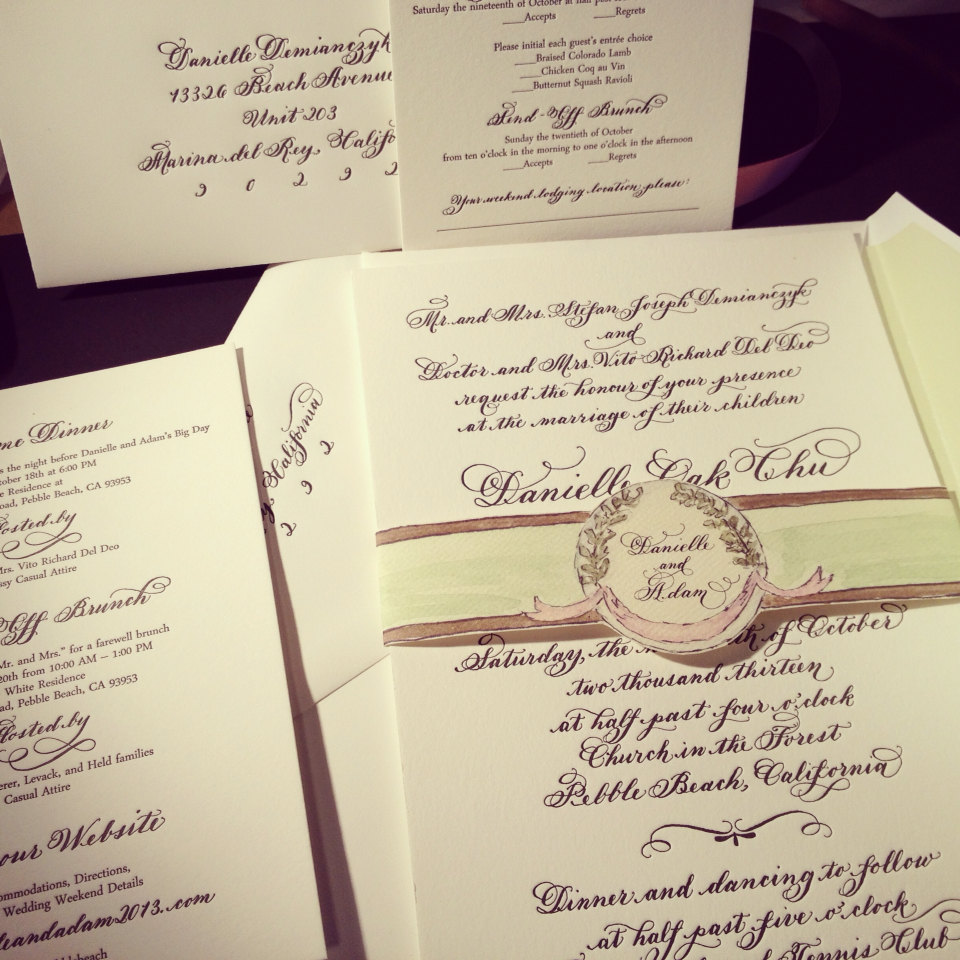 Danielle Demianczyk
13326 Beach Avenue
Unit 203
Marina del Rey, Califo
9 0 2 9 2
Saturday the nineteenth of October at half
Accepts Regrets
Please initial each guest's entrée choice
Braised Colorado Lamb
Chicken Coq au Vin
Butternut Squash Ravioli
Send-Off Brunch
Sunday the twentieth of October
from ten o'clock in the morning to one o'clock in the afternoon
Accepts Regrets
Your weekend lodging location, please:
Mr. and Mrs. Stefan Joseph Demianczyk
and
Doctor and Mrs. Vito Richard Del Deo
request the honour of your presence
at the marriage of their children
Danielle Oak Chu
Danielle
and
Adam
Saturday, the th of October
two thousand thirteen
at half past four o'clock
Church in the Forest
Pebble Beach, California
Dinner and dancing to follow
at half past five o'clock
Tennis Club
California
9 2
me Dinner
s the night before Danielle and Adam's Big Day
tober 18th at 6:00 PM
e Residence at
oad, Pebble Beach, CA 93953
osted by
Mrs. Vito Richard Del Deo
ssy Casual Attire
Off Brunch
Mr. and Mrs." for a farewell brunch
20th from 10:00 AM – 1:00 PM
White Residence
ad, Pebble Beach, CA 93953
osted by
erer, Levack, and Held families
Casual Attire
our Website
ommodations, Directions,
Wedding Weekend Details
leandadam2013.com